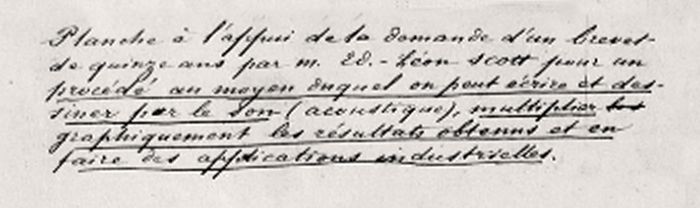 Planche à l'appui de la demande d'un brevet
de quinze ans par m. Ed.-Léon Scott pour un
procédé au moyen duquel on peut écrire et des-
siner par le son (acoustique), multiplier les
graphiquement les résultats obtenus et en
faire des applications industrielles.